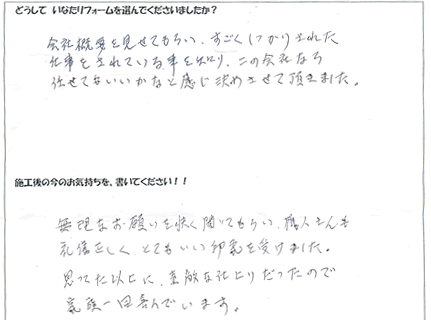 どうして いなたリフォームを選んでくださいましたか？
会社概要を見せてもらい、すごくしっかりされた
仕事をされている事を知り、この会社なら
任せてもいいかなと感じ決めさせて頂きました。
施工後の今のお気持ちを、書いてください！！
無理なお願いを快く聞いてもらい、職人さんも
礼儀正しく、とてもいい印象を受けました。
思ってた以上に、素敵な仕上りだったので
家族一同喜んでいます。